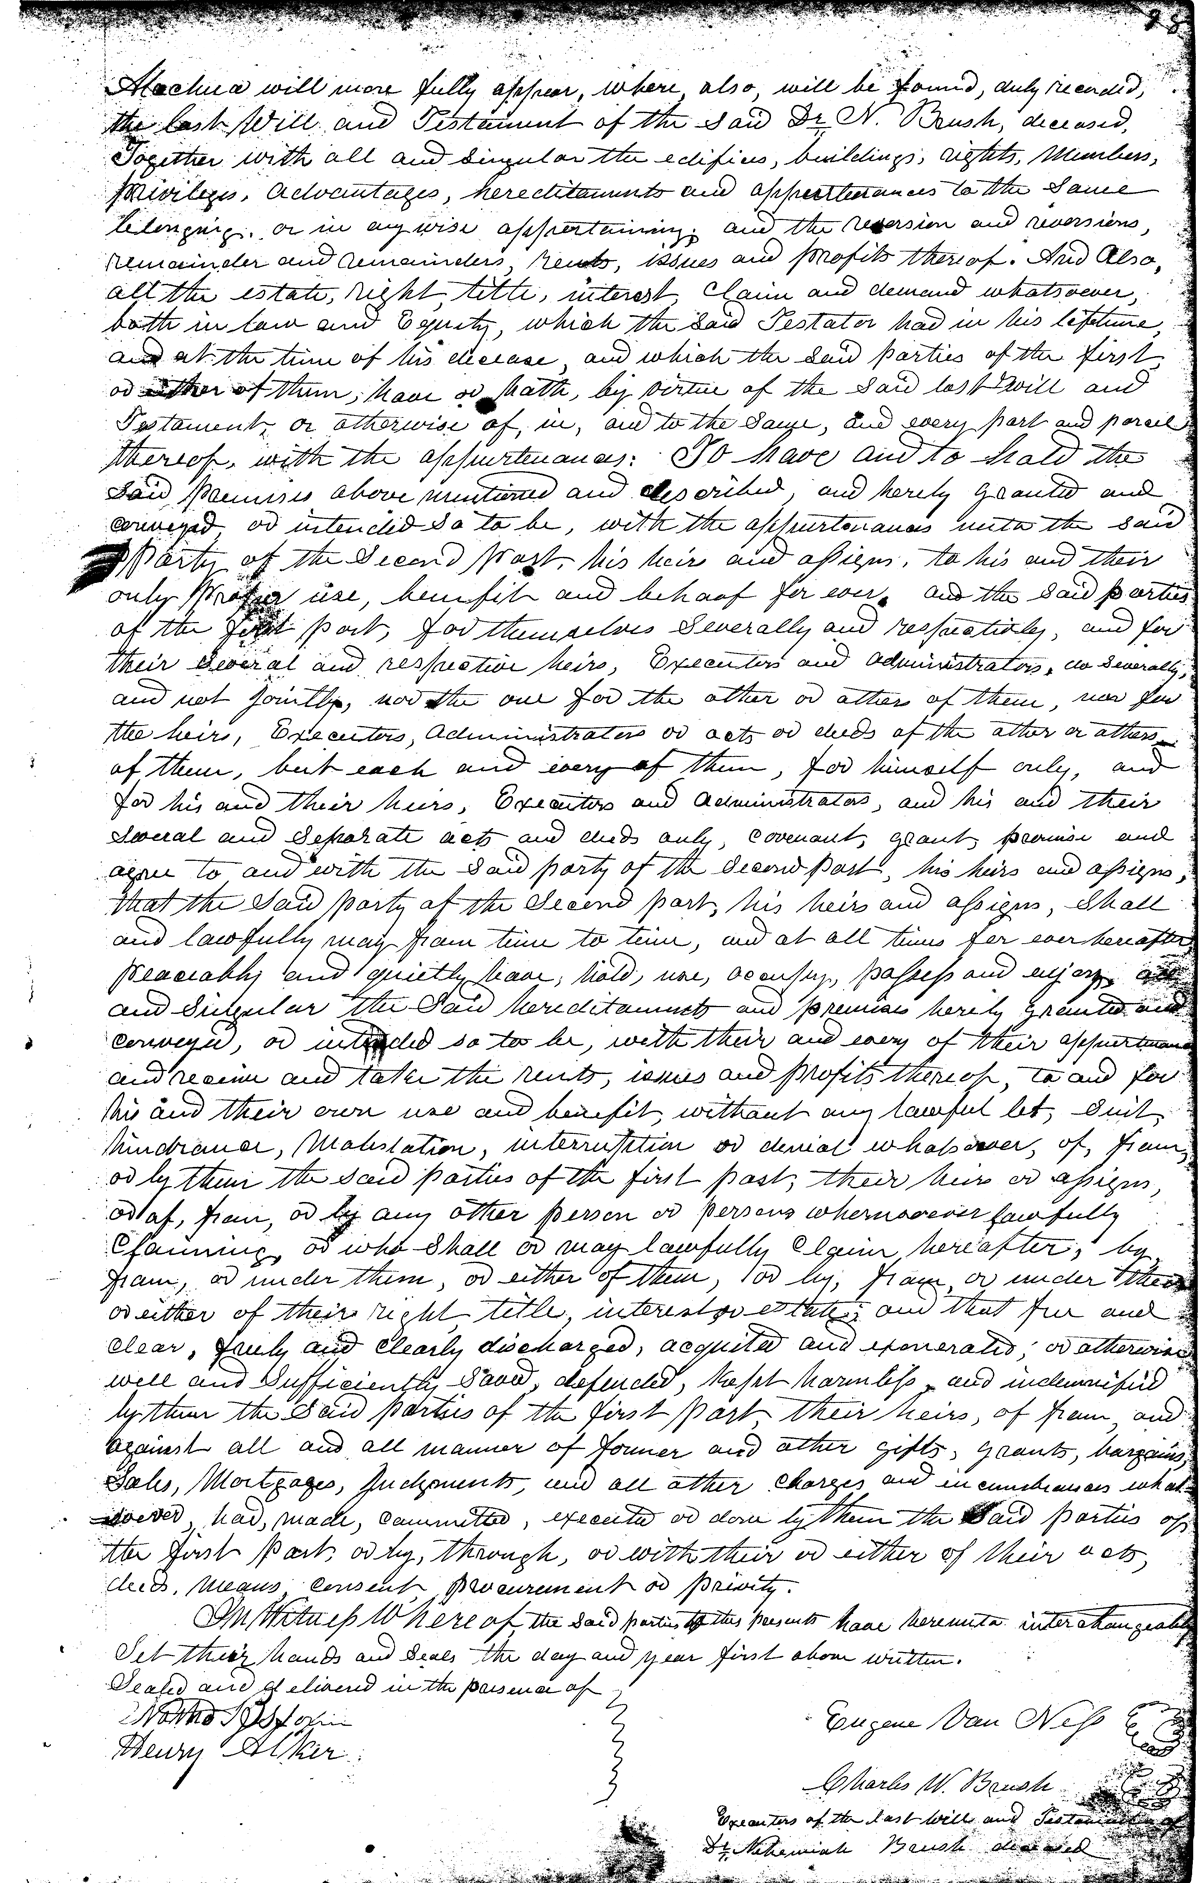 98
Alachua will more fully appear, where, also, will be found, duly recorded,
the last Will and Testament of the Said Dr. N. Brush, deceased,
Together with all and Singular the edifices, buildings, rights, Members,
privileges, advantages, hereditaments and appurtenances to the Same
belonging, or in any wise appertaining; and the reversion and reversions,
remainder and remainders, rents, issues and profits thereof. And Also,
all the estate, right, title, interest, Claim and demand whatsoever,
both in law and Equity, which the Said Testator had in his lifetime,
and at the time of his decease, and which the Said parties of the first,
or either of them, have or hath, by virtue of the Said last Will and
Testament, or otherwise of, in, and to the Same, and every part and parcel
thereof, with the appurtenances: To have and to hold the
Said premises above mentioned and described, and hereby granted and
conveyed, or intended So to be, with the appurtenances unto the said
Party of the Second part, his heirs and assigns, to his and their
only proper use, benefit and behoof for ever. and the Said parties
of the first part, for themselves Severally and respectively, and for
their Several and respective heirs, Executors and administrators, do Severally,
and not jointly, nor the one for the other or others of them, nor for
the heirs, Executors, administrators or acts or deeds of the other or others
of them, but each and every of them, for himself only, and
for his and their heirs, Executors and administrators, and his and their
Several and Separate acts and deeds only, covenant, grant, promise and
agree to, and with the Said party of the Second part, his heirs and assigns,
that the Said party of the Second part, his heirs and assigns, Shall
and lawfully may from time to time, and at all times for ever hereafter,
peaceably and quietly have, hold, use, occupy, possess and enjoy, all
and Singular the Said hereditaments and premises hereby granted and
conveyed, or intended so to be, with their and every of their appurtenances
and receive and take the rents, issues and profits thereof, to and for
his and their own use and benefit, without any lawful let, Suit,
hindrance, Molestation, interruption or denial whatsoever, of, from,
or by them the said parties of the first part, their heirs or assigns,
or of, from, or by any other person or persons whomsoever lawfully
Claiming, or who Shall or may lawfully Claim hereafter, by,
from, or under them, or either of them, or by, from, or under their
or either of their right, title, interest or estate; and that free and
clear, freely and clearly discharged, acquited and exonerated, or otherwise
well and Sufficiently Saved, defended, kept harmless, and indemnified
by them the Said parties of the first part, their heirs, of from, and
against all and all manner of former and other gifts, grants, bargains,
Sales, Mortgages, Judgments, and all other Charges and incumbrances what-
soever, had, made, committed, executed or done by them the Said parties of
the first part, or by, through, or with their or either of their acts,
deeds, means, consent, procurement or privity.
In Witness Whereof, the Said parties to these presents have hereunto interchangeably
Set their hands and Seals the day and year first above written.
Sealed and delivered in the presence of
Henry Alker
Eugene Van Ness
Charles W. Brush
Executors of the last Will and Testament of
Dr. Nehemiah Brush deceased